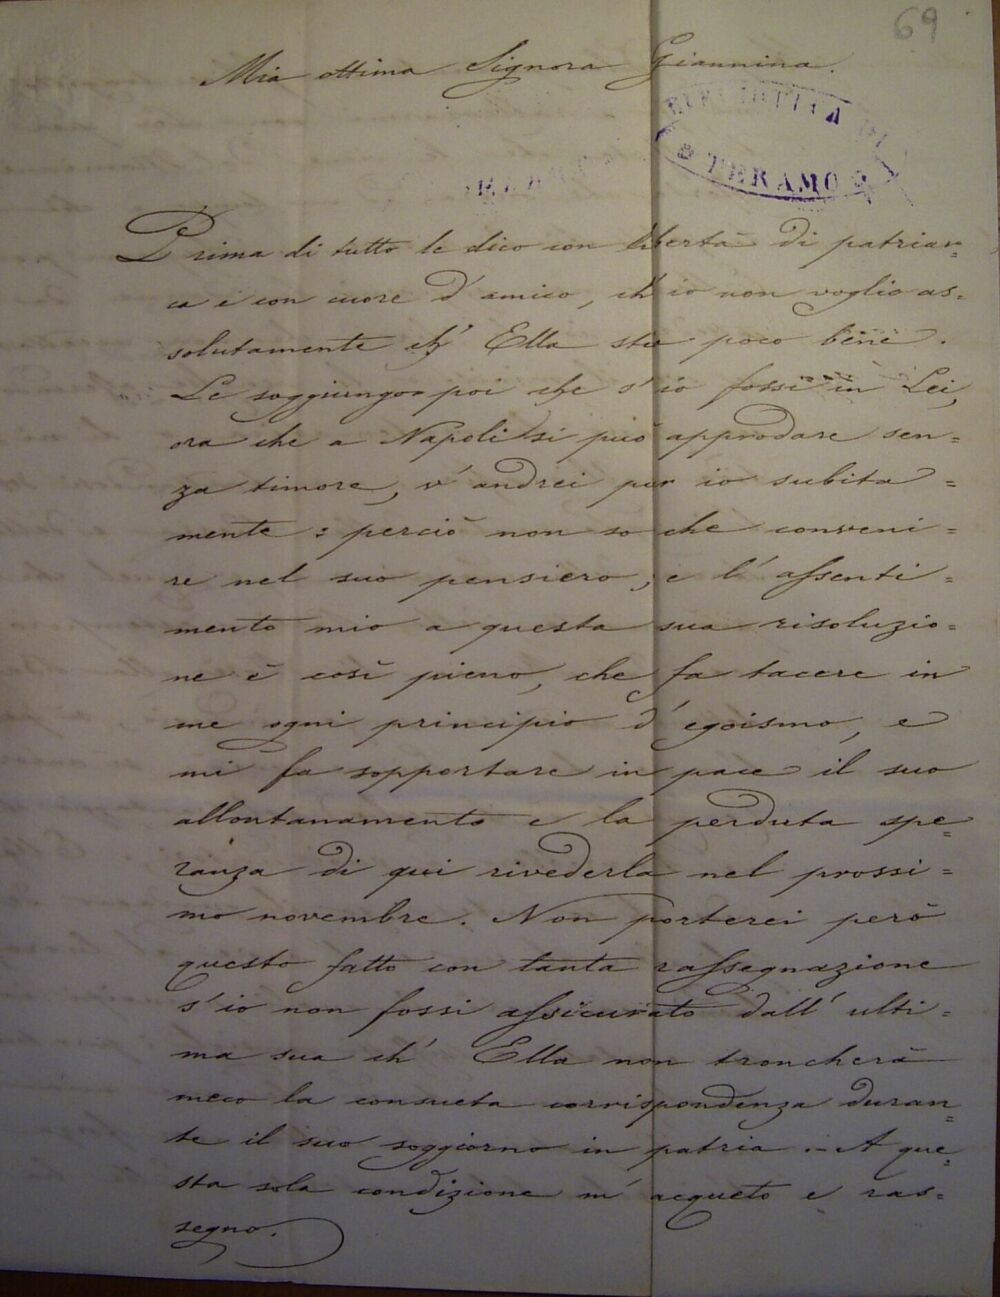 69
Mia ottima Signora Giannina.
BIBLIOTECA DI
TERAMO
Prima di tutto le dico con libertà di patriar=
ca e con cuore d'amico, ch'io non voglio as=
solutamente ch'Ella stia poco bene.
Le soggiungo poi che s'io fossi in Lei,
ora che a Napoli si può approdare sen=
za timore, v'andrei pur io subita=
mente: perciò non so che conveni=
re nel suo pensiero; e l'assenti=
mento mio a questa sua risoluzio=
ne è così pieno, che fa tacere in
me ogni principio d'egoismo, e
mi fa sopportare in pace il suo
allontanamento e la perduta spe=
ranza di qui rivederla nel prossi=
mo novembre. Non porterei però
questo fatto con tanta rassegnazione
s'io non fossi assicurato dall'ulti=
ma sua ch'Ella non troncherà
meco la consueta corrispondenza duran=
te il suo soggiorno in patria. - A que=
sta sola condizione m'acqueto e ras=
segno.